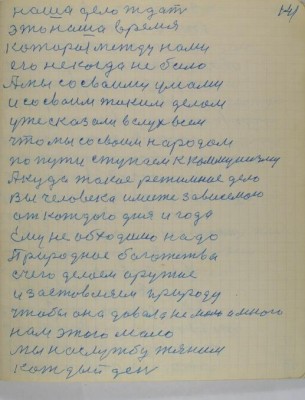 141
наша дело ждат
это наша время
Которае между нами
его некогда не было
Амы со сваими умами
и со своим таким делом
уже сказали вслух всем
что мы со своим народом
по пути ступаем к Коммунизму
Акуда такое режимное дело
вы человека имеите зависемою
от каждого дня и года
Ему не обходимо надо
Природное богатства
с чего делаем оружие
и застовляем природу
чтобы она довала не мало а много
нам этого мало
мы на службу тяним
каждый ден